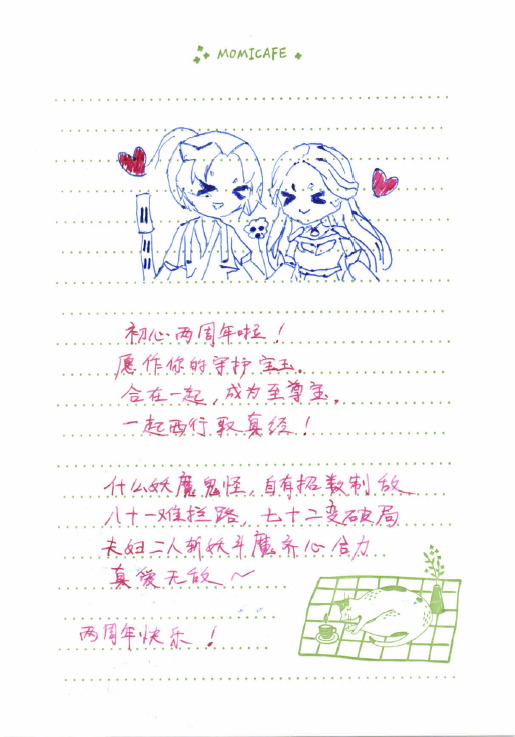 MOMICAFE
初心两周年啦！
愿作你的守护宝玉.
合在一起,成为至尊宝.
一起西行取真经！
什么妖魔鬼怪,自有招数制敌
八十一难拦路,七十二变破局
夫妇二人斩妖斗魔齐心合力
真爱无敌～
两周年快乐！